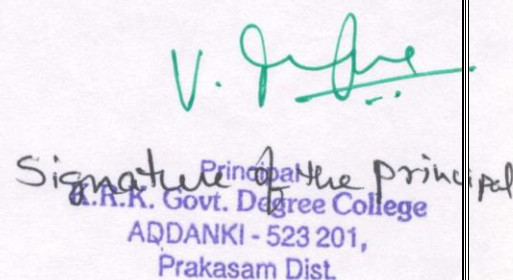 V.
Signature of the principal
Principal
K.R.K. Govt. Degree College
ADDANKI - 523 201,
Prakasam Dist.